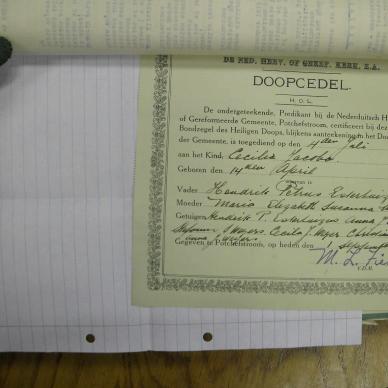 DE NED. HERV. OF GEREF. KERK, Z.A.
DOOPCEDEL.
De ondergeteekende, Predikant bij de Nederduitsch H
of Gereformeerde Gemeente, Potchefstroom, certificeert bij dez
Bondzegel des Heiligen Doops, blijkens aanteekening in het Doo
der Gemeente, is toegediend op den 4den Juli
aan het Kind, Cecilia Jacoba
Geboren den 14den April
Vader Hendrik Petrus Esterhuiz
Moeder Maria Elizabeth Susanna
Getuigen Hendrik P. Esterhuizen Anna
Meyers Cecilia J. Meyer
Gegeven te Potchefstroom, op heden den 1 September
M. L. Fic
V.D.M.